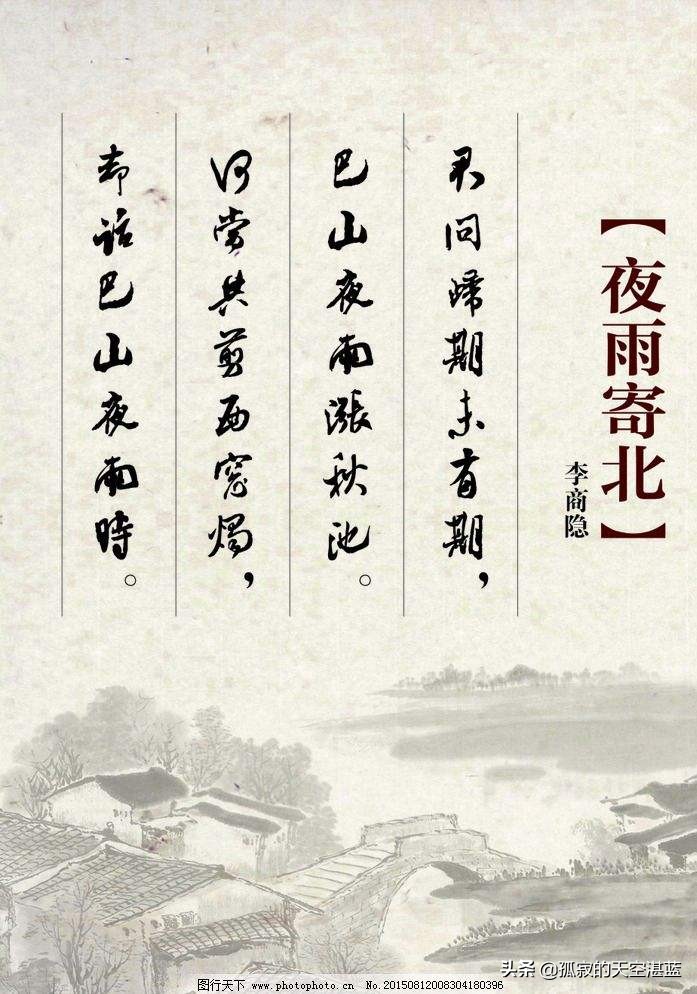 【夜雨寄北】
李商隐
君问歸期未有期，
巴山夜雨漲秋池。
何當共剪西窗燭，
却話巴山夜雨時。
图行天下 www.photophoto.cn No.20150812008304180396
头条 @孤寂的天空湛蓝